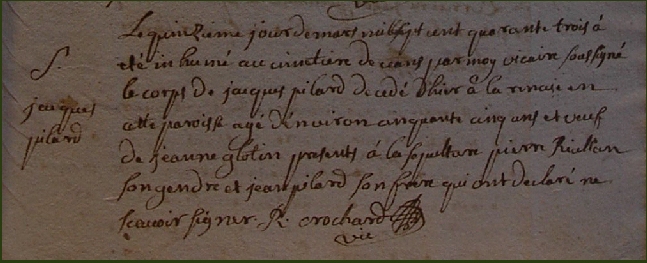 S.
jacques
pilard
Le quinzieme jour de mars mil sept cent quarante trois á
eté inhumé au cimetiere de ceans par moy vicaire soussigné
le corps de jacques pilard decedé d'hier á la
en
cette paroisse agé d'environ cinquante cinq ans et veuf
de jeanne glotin presents á la sepulture pierre
son gendre et jean pilard son frere qui ont declaré ne
scavoir signer. R. crochard
vic